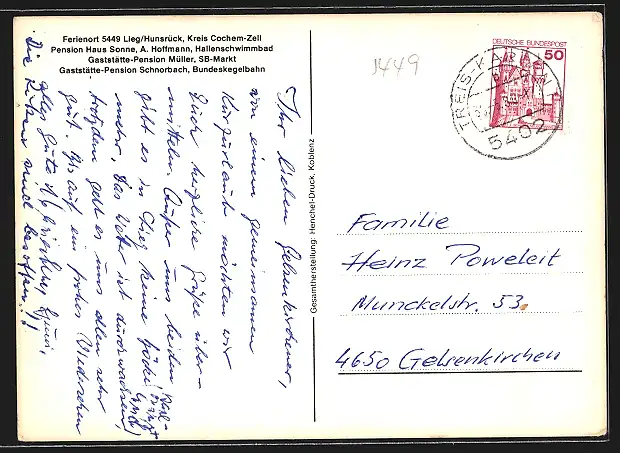 Ferienort 5449 Lieg/Hunsrück, Kreis Cochem-Zell
Pension Haus Sonne, A. Hoffmann, Hallenschwimmbad
Gaststätte-Pension Müller, SB-Markt
Gaststätte-Pension Schnorbach, Bundeskegelbahn
1449
DEUTSCHE BUNDESPOST
50
TREIS-KARDEN
5402
Ihr lieben Gelsenkirchener,
von einem gemeinsamen
Kurzurlaub möchten wir
Euch herzliche Grüße über-
mitteln. Außer uns beiden
gibt es in Lieg keine
mehr. Das Wetter ist durchwachsen,
trotzdem geht es uns allen sehr
gut. Bis auf ein frohes Wiedersehen
alles Gute
Die sind besoffen!!
Gesamtherstellung: Henchel-Druck, Koblenz
Familie
Heinz Poweleit
Munckelstr. 53
4650 Gelsenkirchen